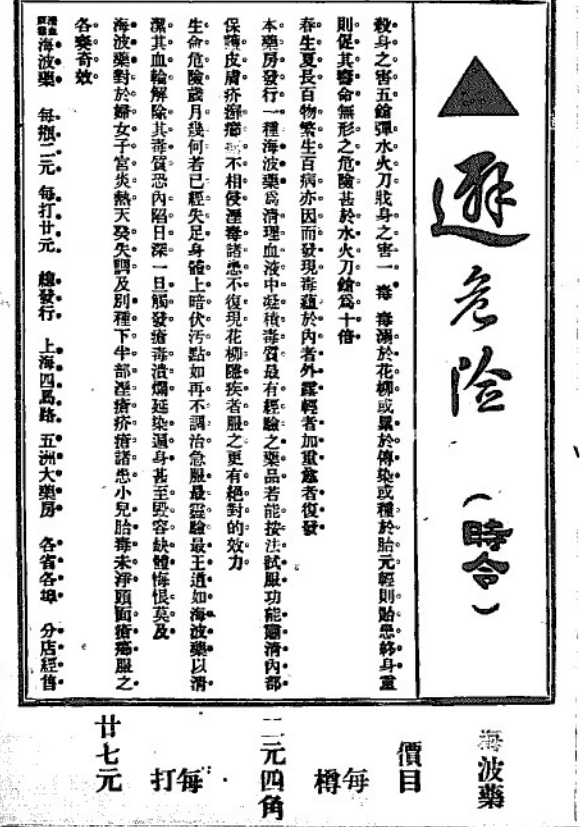 避危險
(時令)
殺身之害五鎗彈水火刀戕身之害一毒毒溺於花柳或纍於傳染或種於胎元輕則貽患終身重
則促其壽命無形之危險甚於水火刀鎗為十倍
春生夏長百物繁生百病亦因而發現毒蘊於內者外露輕者加重愈者復發
本藥房發行一種海波藥爲清理血液中凝積毒質最有經驗之藥品若能按法試服功能肅清內部
保護皮膚疥癬瘡不相侵溼毒諸患不復現花柳隱疾者服之更有絕對的效力
生命危險歲月幾何若已經失足身體上暗伏汚點如再不調治急服最靈驗最王道如海波藥以清
潔其血輪解除其毒質恐內陷日深一旦觸發瘡毒潰爛延染遍身甚至毀容缺體悔恨莫及
海波藥對於婦女子宮炎熱天癸失調及別種下半部溼瘡疥瘡諸患小兒胎毒未淨頭面瘡瘍服之
各奏奇效
清血解毒 海波藥 每瓶二元 每打廿元 總發行 上海四馬路 五洲大藥房 各省各埠 分店經售
海波藥
價目
每樽
二元四角
每打
廿七元